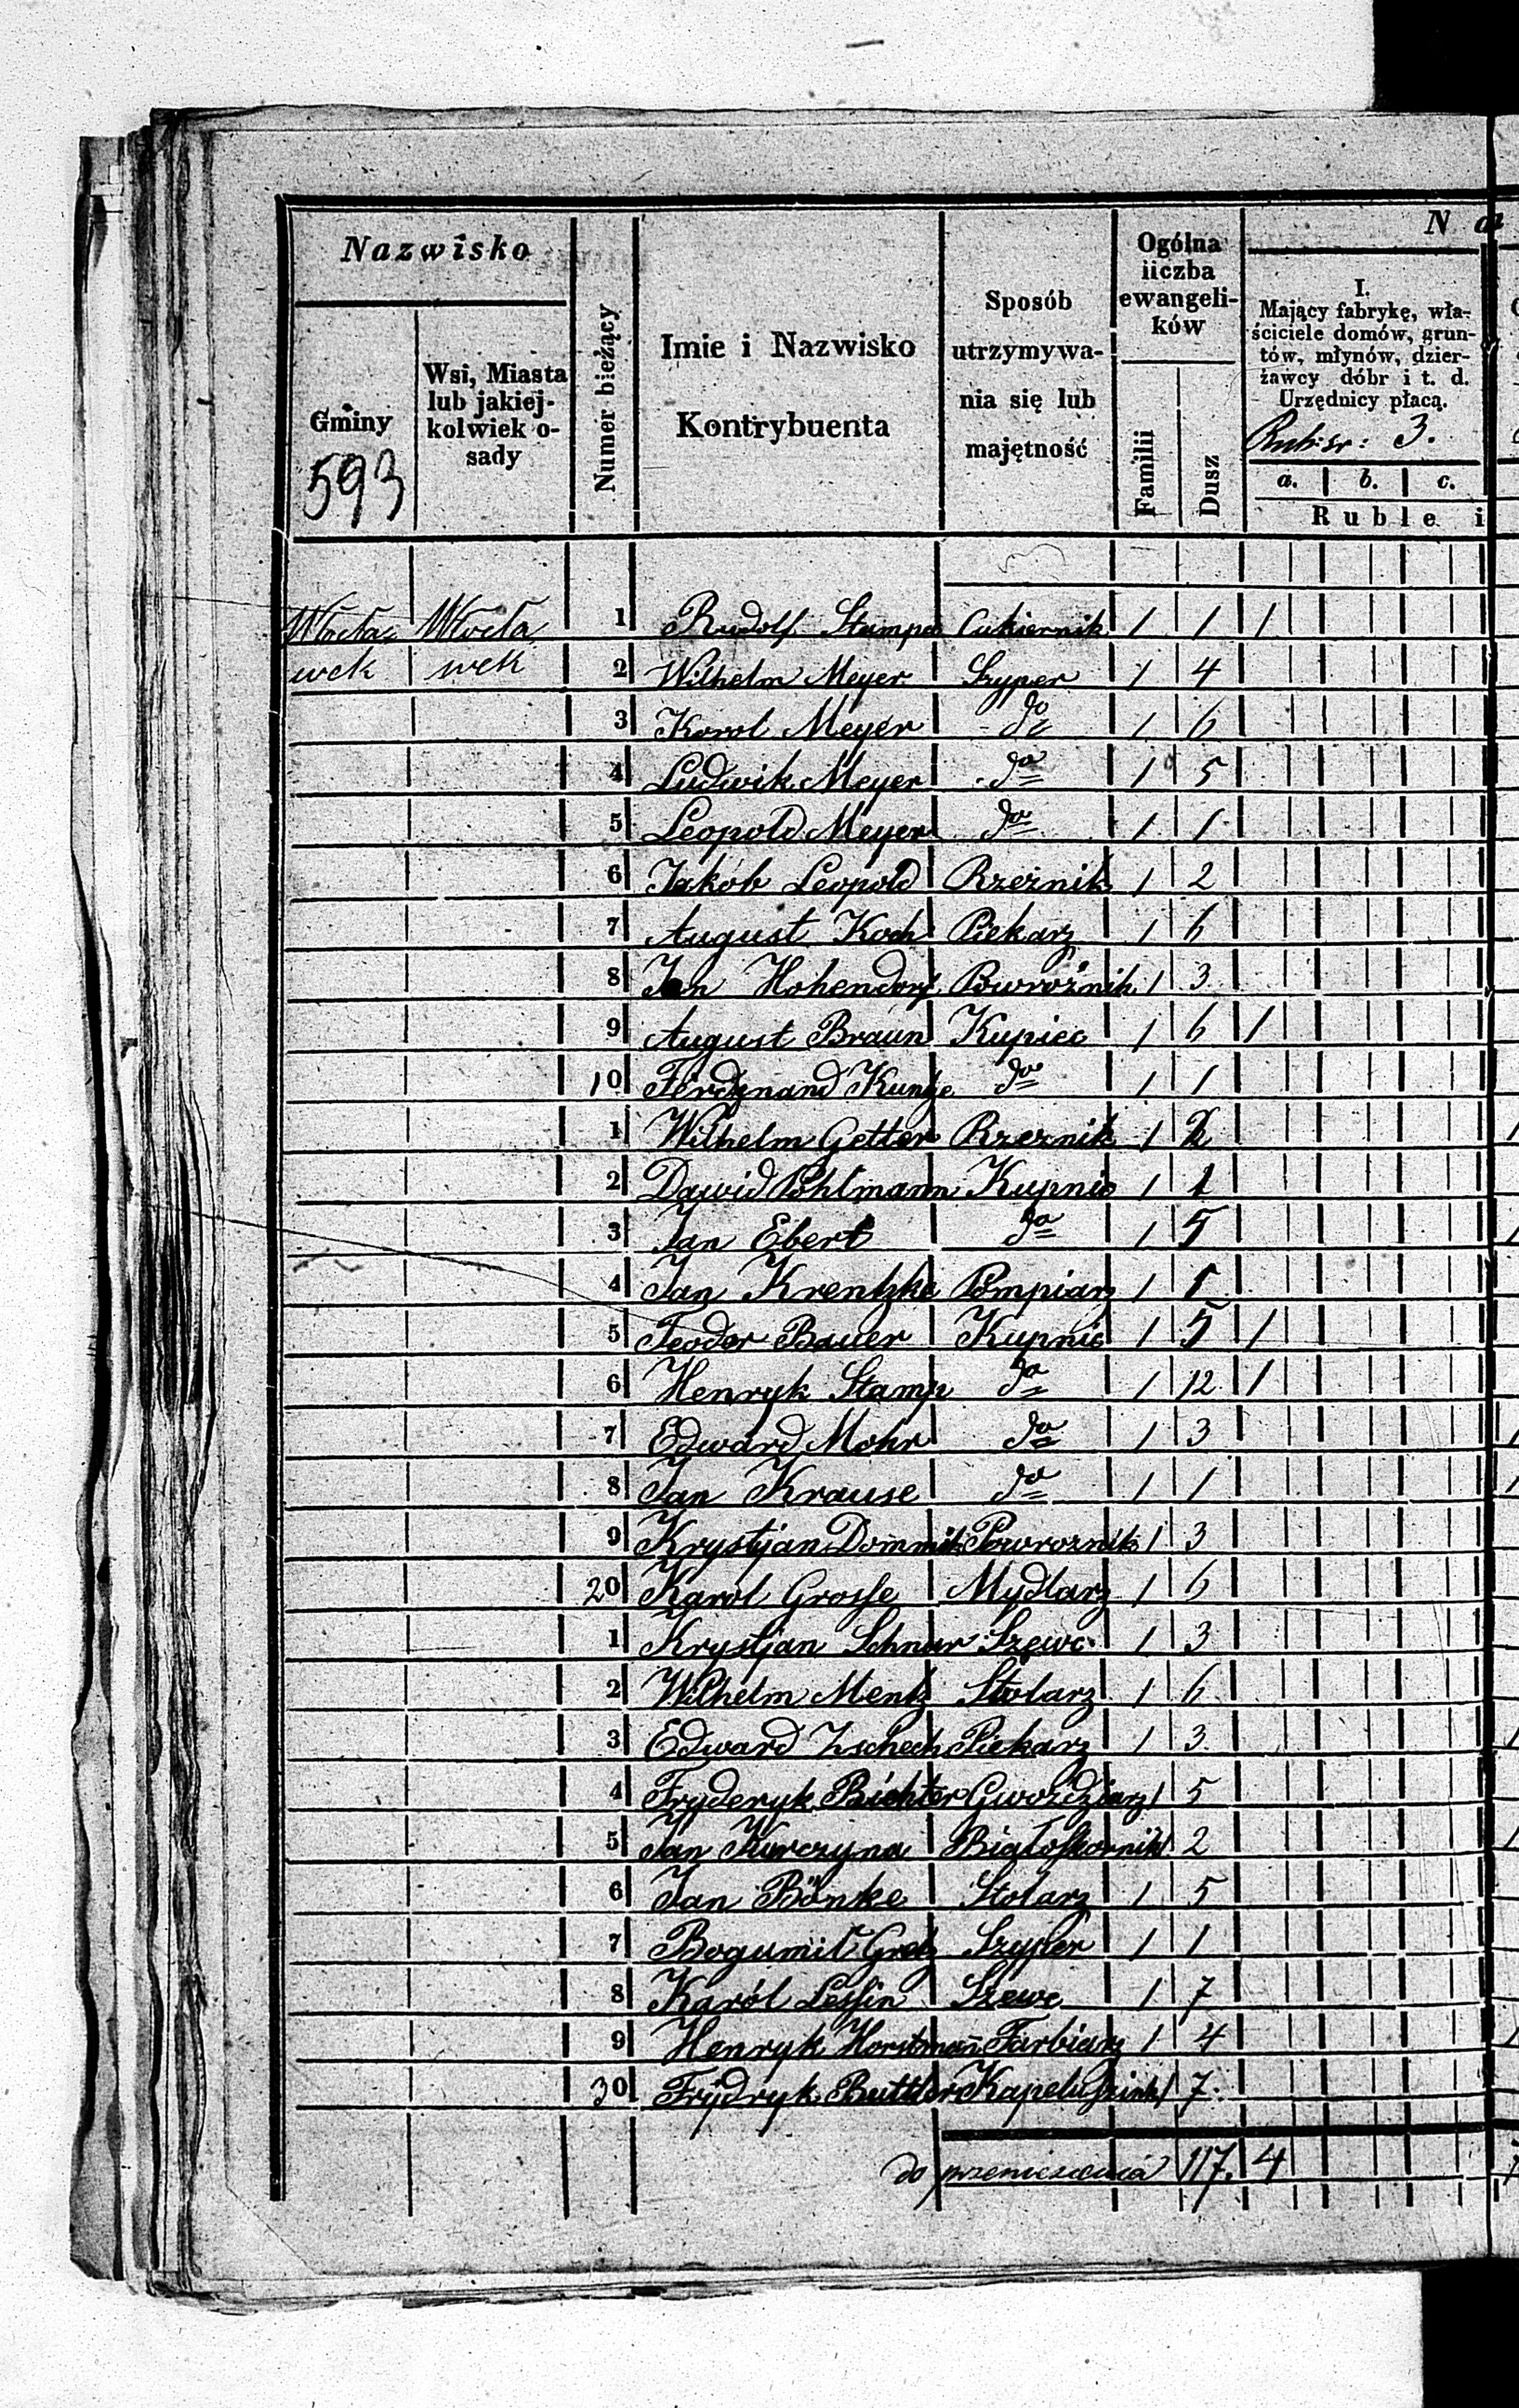 Nazwisko
Gminy
593
Wsi, Miasta
lub jakiej-
kolwiek o-
sady
Numer bieżący
Imie i Nazwisko
Kontrybuenta
Sposób
utrzymywa-
nia się lub
majętność
Ogólna
liczba
ewangeli-
ków
Familii
Dusz
N a
I.
Mający fabrykę, wła-
ściciele domów, grun-
tów, młynów, dzier-
żawcy dóbr i t. d.
Urzędnicy płacą.
Rub: sr: 3.
a. b. c.
Ruble i
Włocła= Włocła 1 Rudolf Stampa Cukiernik 1 1 1
wek wek 2 Wilhelm Meyer Szyper 1 4
3 Karol Meyer do 1 6
4 Ludwik Meyer do 1 5
5 Leopold Meyer do 1 1
6 Jakób Leopold Rzeźnik 1 2
7 August Koch Piekarz 1 6
8 Jan Hohendorf Powroźnik 1 3
9 August Braun Kupiec 1 6 1
10 Ferdynand Kuntze do 1 1
1 Wilhelm Getter Rzeznik 1 2
2 Dawid Pohlmann Kupnic 1 1
3 Jan Ebert do 1 5
4 Jan Krentzke Pompiarz 1 1
5 Teodor Bauer Kupnic 1 5 1
6 Henryk Stamp do 1 12 1
7 Edward Mohr do 1 3
8 Jan Krause do 1 1
9 Krystjan Dommik Powroznik 1 3
20 Karol Grosse Mydlarz 1 6
1 Krystjan Schnur Szewc 1 3
2 Wilhelm Mentz Stolarz 1 6
3 Edward Zschech Piekarz 1 3
4 Fryderyk Richter Gwoździarz 1 5
5 Jan Kurczyna Białoskornik 1 2
6 Jan Bönke Stolarz 1 5
7 Bogumił Gretz Szyper 1 1
8 Karól Lessin Szewc 1 7
9 Henryk Horstmañ Farbiarz 1 4
30 Frydryk Buttler Kapelusznik 1 7
do przeniesienia 117. 4